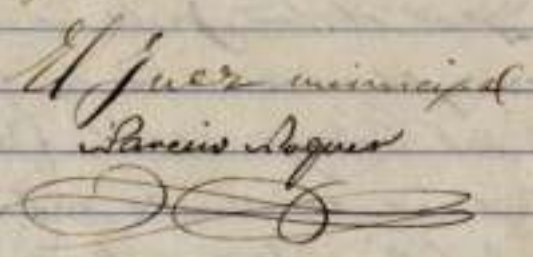 El Juez municipal
Narciso Roquer